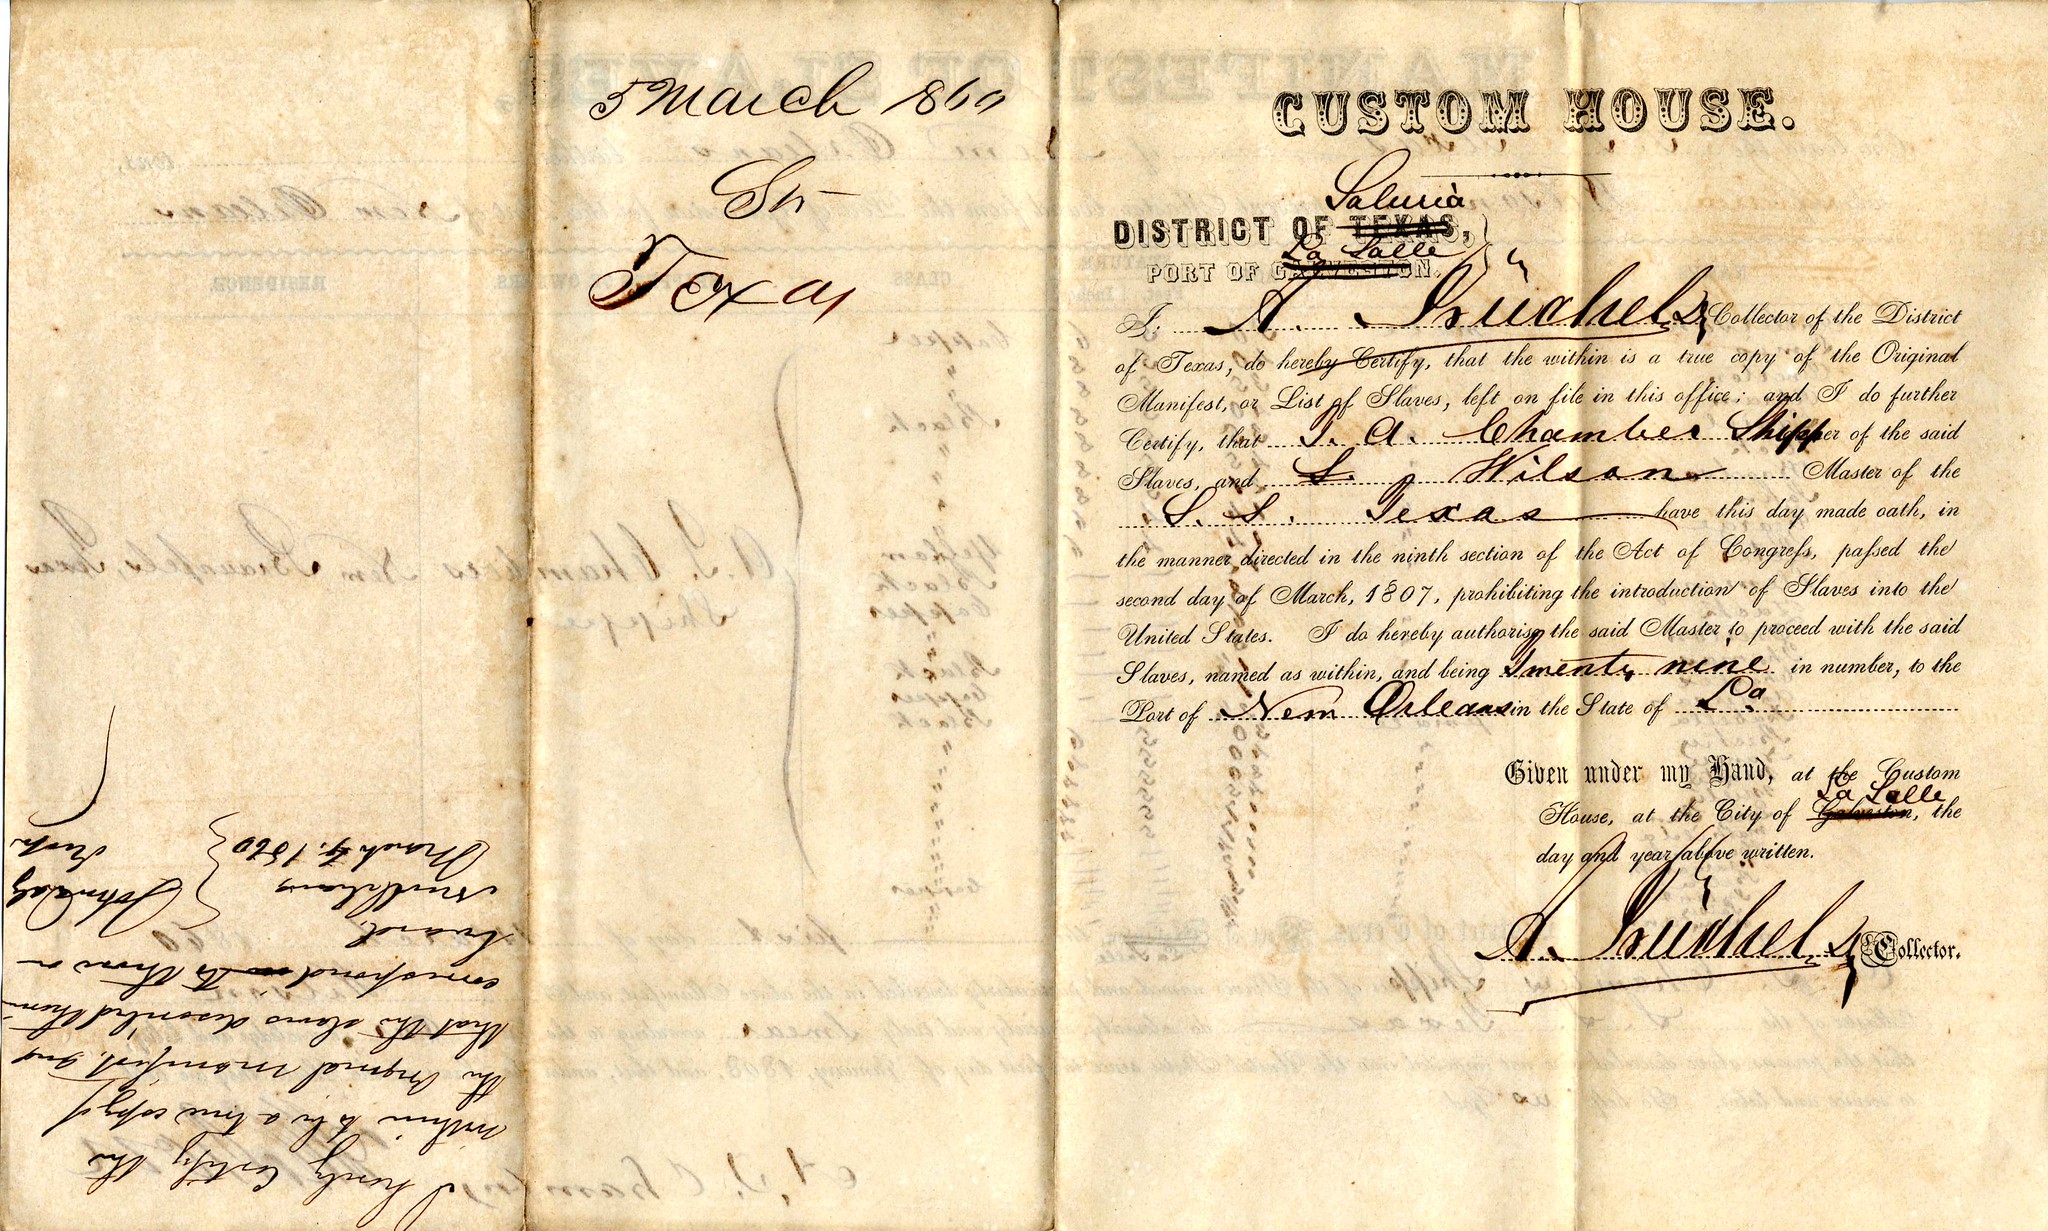 5 March 1860
Str
Texas
CUSTOM HOUSE.
Saluria
DISTRICT OF TEXAS,
La Salle
PORT OF GALVESTON.
I, A. Buchel Collector of the District
of Texas, do hereby Certify, that the within is a true copy of the Original
Manifest, or List of Slaves, left on file in this office; and I do further
Certify, that T. A. Chambers Shipper of the said
Slaves, and S. Wilson Master of the
S. S. Texas have this day made oath, in
the manner directed in the ninth section of the Act of Congress, passed the
second day of March, 1807, prohibiting the introduction of Slaves into the
United States. I do hereby authorise the said Master to proceed with the said
Slaves, named as within, and being Twenty nine in number, to the
Port of New Orleans in the State of La
Given under my Hand, at the Custom
La Salle
House, at the City of Galveston, the
day and year above written.
A. Buchel Collector.
I hereby Certify the
within to be a true copy of
the Original Manifest, and
that the slaves described therein
correspond to those on
board.
New Orleans
March 5. 1860